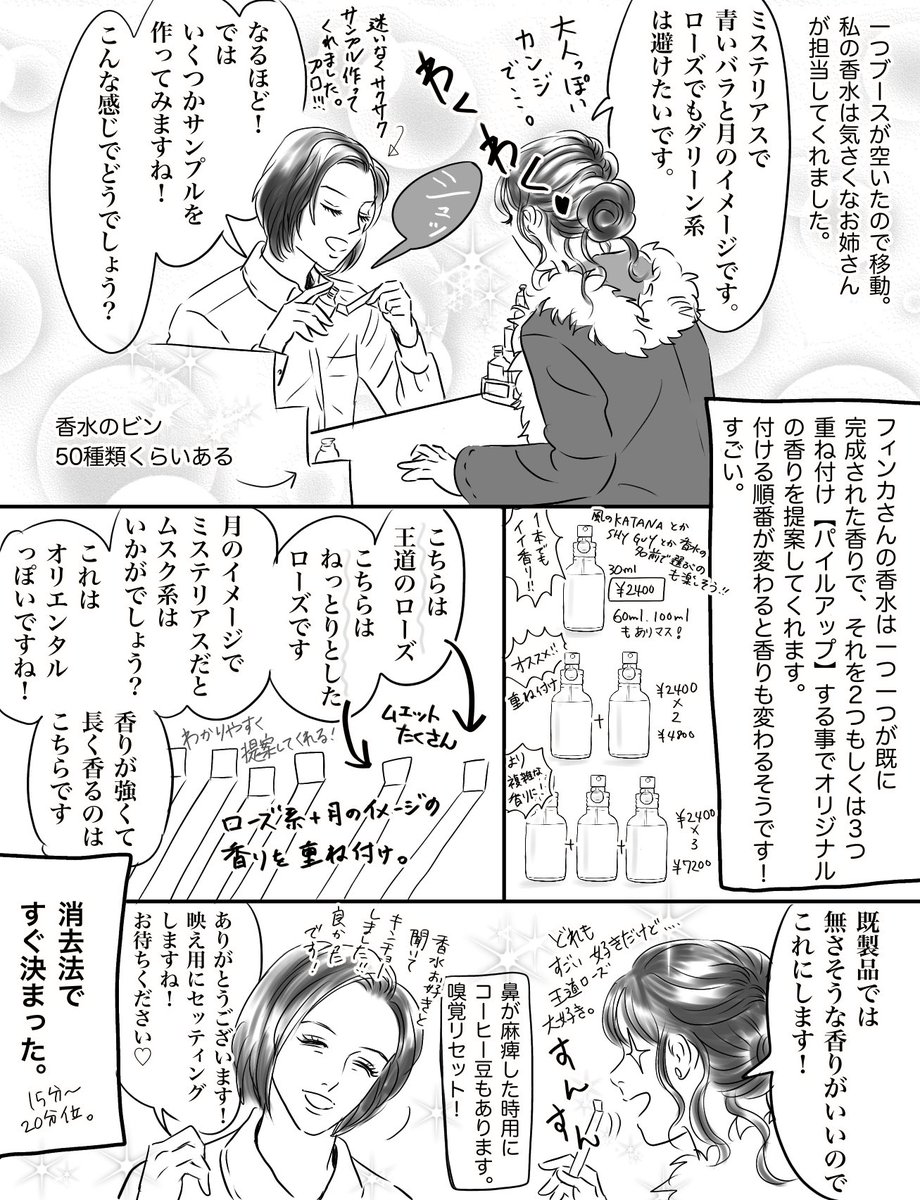 一つブースが空いたので移動。
私の香水は気さくなお姉さん
が担当してくれました。
ミステリアスで
青いバラと月のイメージです。
ローズでもグリーン系
は避けたいです。
大人っぽい
カンジ
で…。
わく
わく
迷いなくサクサク
サンプル作って
くれました。
プロ!!!
なるほど！
では
いくつかサンプルを
作ってみますね！
こんな感じでどうでしょう？
シュッ
香水のビン
50種類くらいある
フィンカさんの香水は一つ一つが既に
完成された香りで、それを2つもしくは3つ
重ね付け【パイルアップ】する事でオリジナル
の香りを提案してくれます。
付ける順番が変わると香りも変わるそうです！
すごい。
1本でも
イイ香り!!
風のKATANAとか
SHY GUYとか香水の
名前で選ぶの
も楽しそう!!
30ml
¥2400
60ml.100ml
もありマス!
オススメ!!
重ね付け
+
¥2400
×
2
¥4800
より
複雑な
香りに!
+
+
¥2400
×
3
¥7200
こちらは
王道のローズ
こちらは
ねっとりとした
ローズです
月のイメージで
ミステリアスだと
ムスク系は
いかがでしょう？
これは
オリエンタル
っぽいですね！
香りが強くて
長く香るのは
こちらです
わかりやすく
提案してくれる!
ムエット
たくさん
ローズ系+月のイメージの
香りを重ね付け。
既製品では
無さそうな香りがいいので
これにします！
どれも
すごい好きだけど…
王道ローズ
大好き。
すんすん
すん
鼻が麻痺した時用に
コーヒー豆もあります。
嗅覚リセット！
香水お好きと
聞いて
キンチョー
しました!!
良かった
です!
ありがとうございます！
映え用にセッティング
しますね！
お待ちください♡
消去法で
すぐ決まった。
15分〜
20分位。